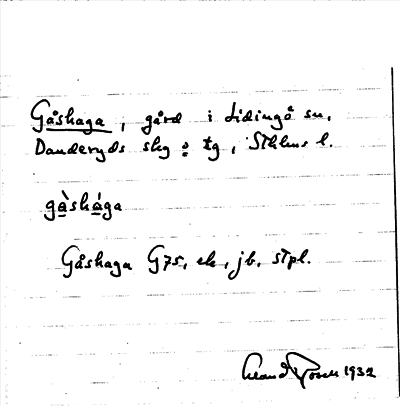 Gåshaga, gård i Lidingö sn,
Danderyds slg o tg, Sthlms l.
gàshága
Gåshaga G75, ek, jb, stpl.
1932